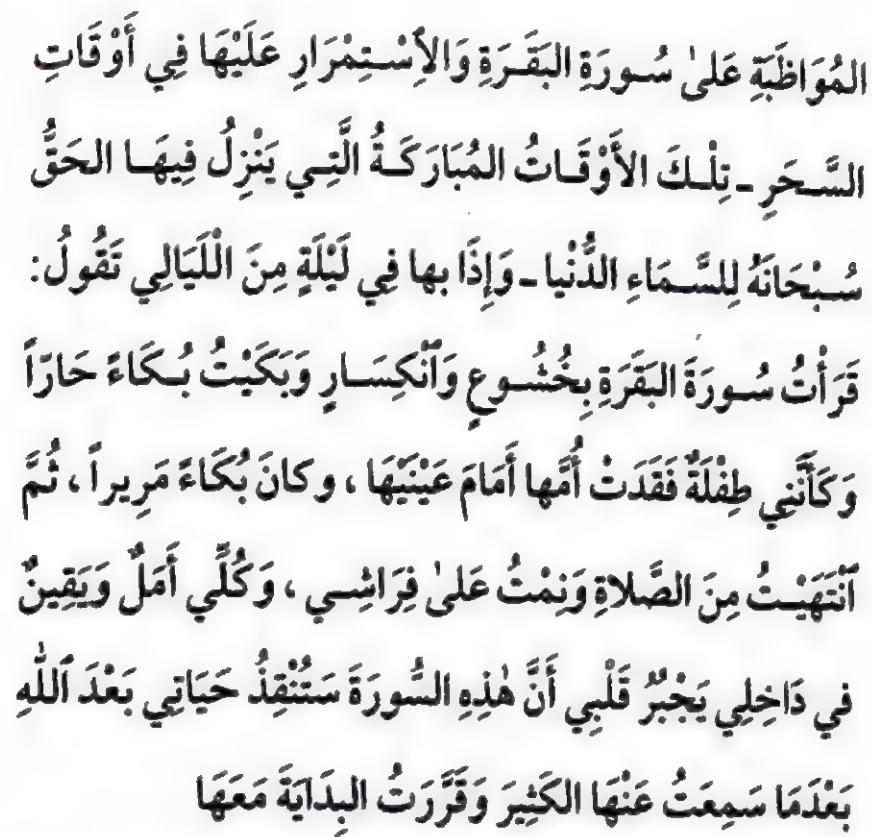 المُوَاظَبَةِ عَلىٰ سُورَةِ البَقَرَةِ وَالاِسْتِمْرَارِ عَلَيْهَا فِي أَوْقَاتِ
السَّحَرِ - تِلْكَ الأَوْقَاتُ المُبَارَكَةُ الَّتِي يَنْزِلُ فِيهَا الحَقُّ
سُبْحَانَهُ لِلسَّمَاءِ الدُّنْيا - وَإِذَا بها فِي لَيْلَةٍ مِنَ اللَّيَالِي تَقُولُ:
قَرَأْتُ سُورَةَ البَقَرَةِ بِخُشُوعٍ وَٱنْكِسَارٍ وَبَكَيْتُ بُكَاءً حَارّاً
وَكَأَنَّنِي طِفْلَةٌ فَقَدَتْ أُمَّها أَمَامَ عَيْنَيْهَا ، وكانَ بُكَاءً مَرِيراً ، ثُمَّ
ٱنْتَهَيْتُ مِنَ الصَّلاةِ وَنِمْتُ عَلىٰ فِرَاشِي ، وَكُلِّي أَمَلٌ وَيَقِينٌ
في دَاخِلِي يَجْبُرُ قَلْبِي أَنَّ هٰذِهِ السُّورَةَ سَتُنْقِذُ حَيَاتِي بَعْدَ ٱللّٰهِ
بَعْدَمَا سَمِعَتُ عَنْهَا الكَثِيرَ وَقَرَّرَتُ البِدَايَةَ مَعَهَا